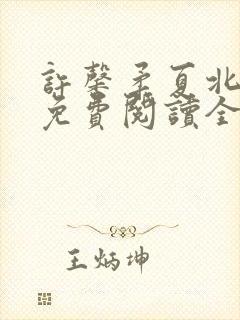 許馨矛夏北
免費閱讀全
王炳坤